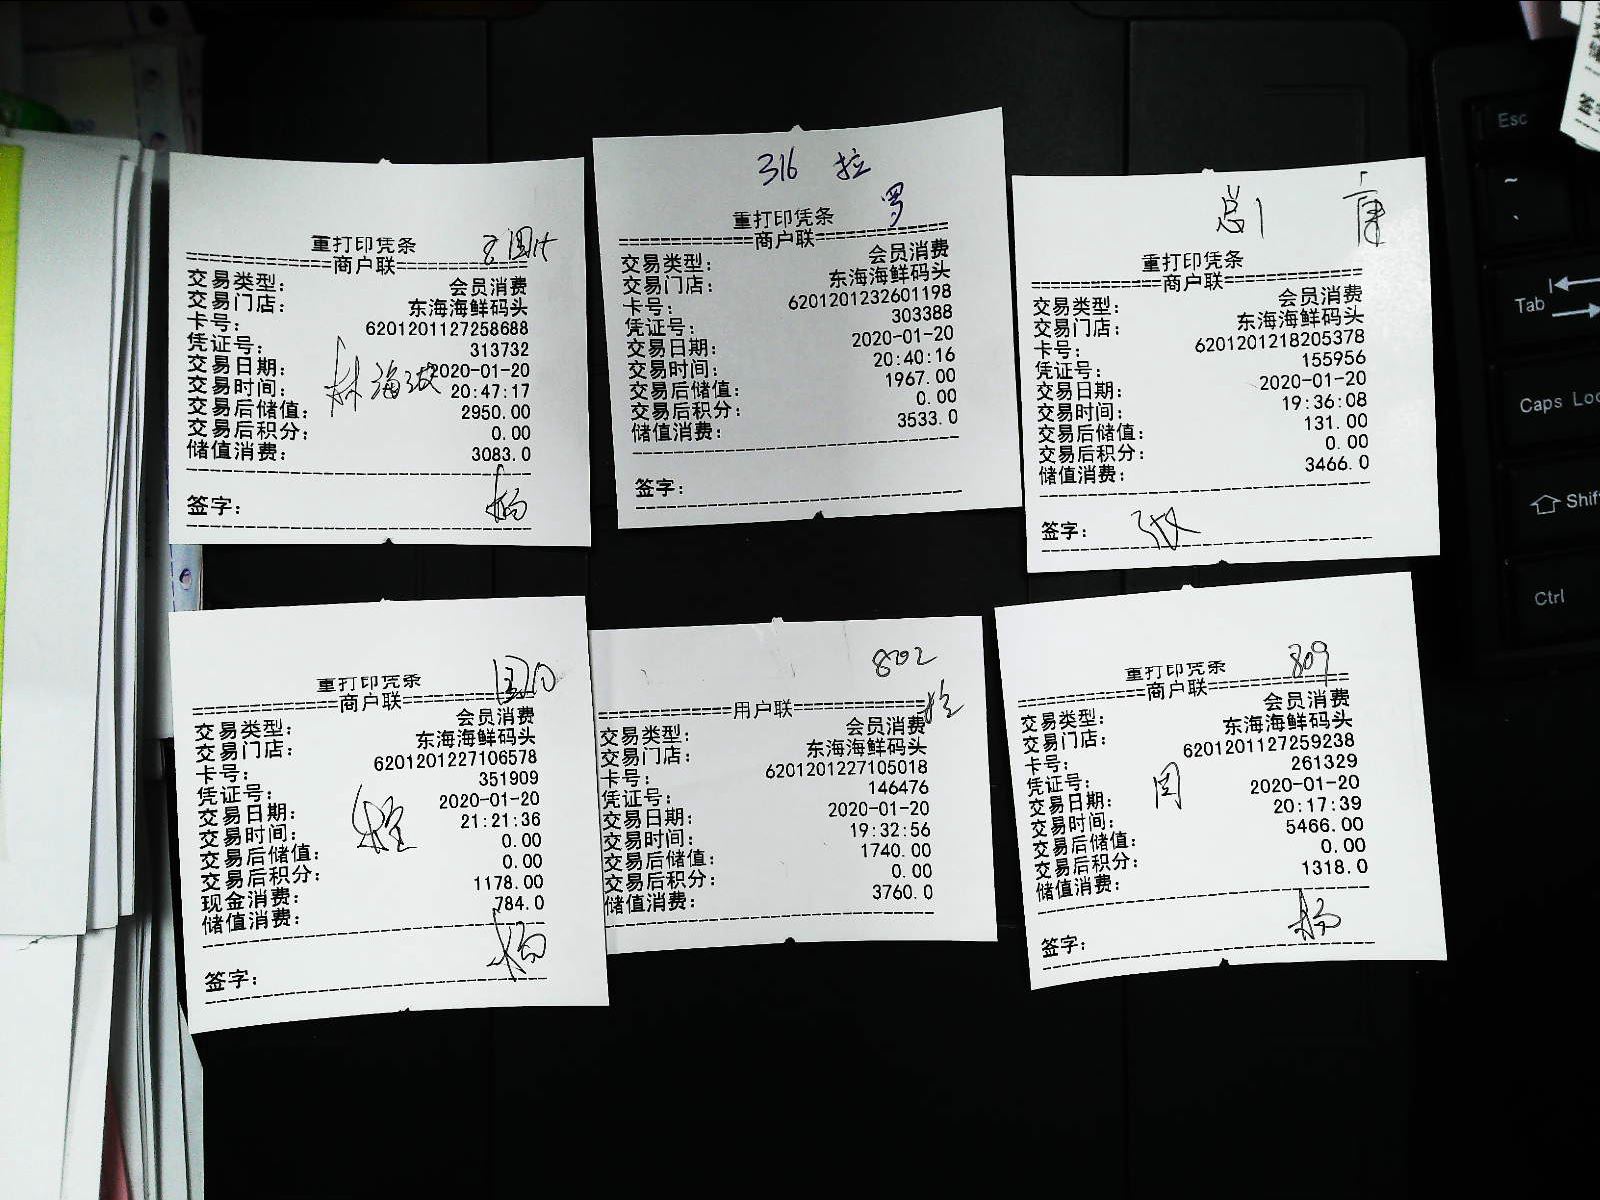 重打印凭条
==============商户联==============
交易类型: 会员消费
交易门店: 东海海鲜码头
卡号: 6201201127258688
凭证号: 313732
交易日期: 2020-01-20
林海波
交易时间: 20:47:17
交易后储值: 2950.00
交易后积分: 0.00
储值消费: 3083.0
签字: 杨
316 拉
罗
重打印凭条
==============商户联==============
交易类型: 会员消费
交易门店: 东海海鲜码头
卡号: 6201201232601198
凭证号: 303388
交易日期: 2020-01-20
交易时间: 20:40:16
交易后储值: 1967.00
交易后积分: 0.00
储值消费: 3533.0
签字:
总1 康
重打印凭条
==============商户联==============
交易类型: 会员消费
交易门店: 东海海鲜码头
卡号: 6201201218205378
凭证号: 155956
交易日期: 2020-01-20
交易时间: 19:36:08
交易后储值: 131.00
交易后积分: 0.00
储值消费: 3466.0
签字:
重打印凭条
==============商户联==============
交易类型: 会员消费
交易门店: 东海海鲜码头
卡号: 6201201227106578
凭证号: 351909
交易日期: 2020-01-20
交易时间: 21:21:36
交易后储值: 0.00
交易后积分: 0.00
现金消费: 1178.00
储值消费: 784.0
签字: 杨
802
==============用户联==============
交易类型: 会员消费
交易门店: 东海海鲜码头
卡号: 6201201227105018
凭证号: 146476
交易日期: 2020-01-20
交易时间: 19:32:56
交易后储值: 1740.00
交易后积分: 0.00
储值消费: 3760.0
809
重打印凭条
==============商户联==============
交易类型: 会员消费
交易门店: 东海海鲜码头
卡号: 6201201127259238
凭证号: 261329
交易日期: 2020-01-20
交易时间: 20:17:39
交易后储值: 5466.00
交易后积分: 0.00
储值消费: 1318.0
签字: 杨
Esc
~
Tab
Caps Loc
Shift
Ctrl